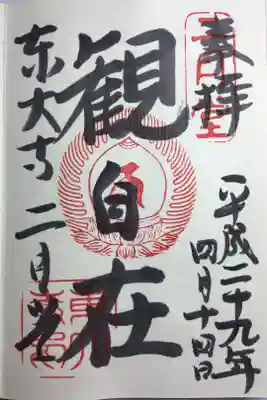 奉拝
平成二十九年
四月十四日
観自在
東大寺 二月堂